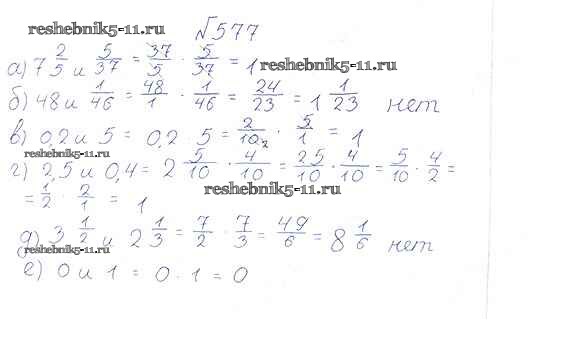 reshebnik5-11.ru
№577
а) 7 2/5 и 5/37 = 37/5 · 5/37 = 1
reshebnik5-11.ru
б) 48 и 1/46 = 48/1 · 1/46 = 24/23 = 1 1/23 нет
в) 0,2 и 5 = 0,2 5 = 2/10 · 5/1 = 1
reshebnik5-11.ru
г) 2,5 и 0,4 = 2 5/10 · 4/10 = 25/10 · 4/10 = 5/10 · 4/2 =
= 1/2 · 2/1 = 1
reshebnik5-11.ru
д) 3 1/2 и 2 1/3 = 7/2 · 7/3 = 49/6 = 8 1/6 нет
reshebnik5-11.ru
е) 0 и 1 = 0 · 1 = 0